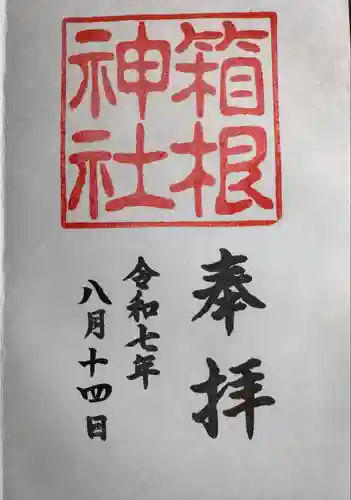 箱根
神社
奉拝
令和七年
八月十四日